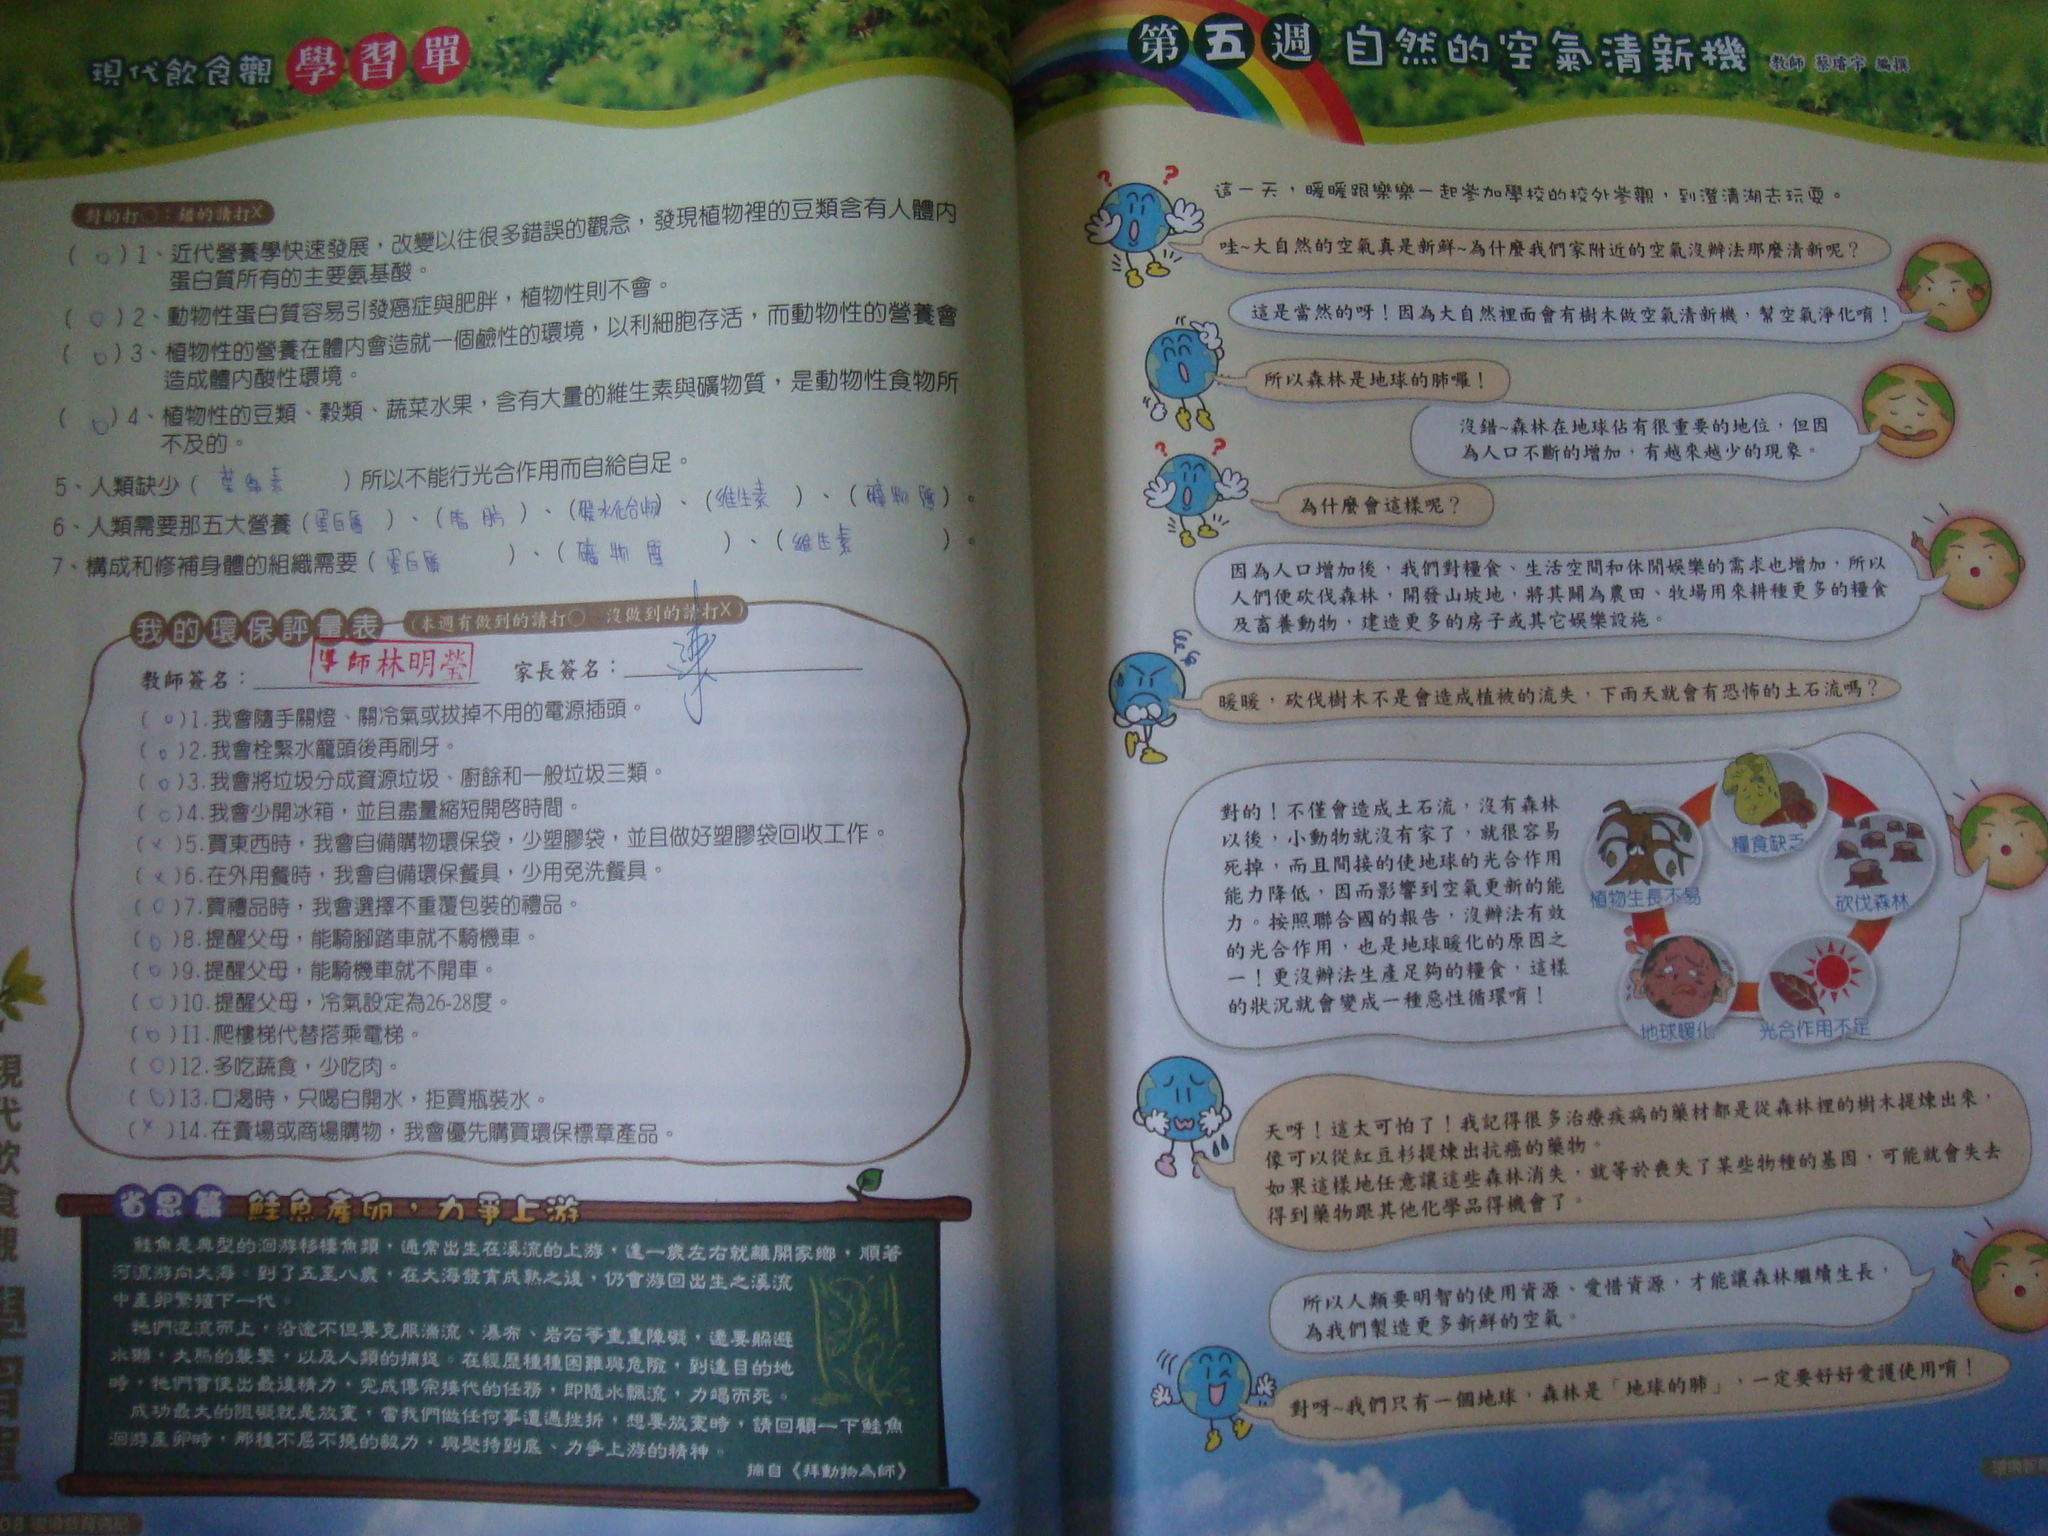 現代飲食觀 學習單
對的打○；錯的請打X
( o ) 1、近代營養學快速發展，改變以往很多錯誤的觀念，發現植物裡的豆類含有人體內
蛋白質所有的主要氨基酸。
( o ) 2、動物性蛋白質容易引發癌症與肥胖，植物性則不會。
( o ) 3、植物性的營養在體內會造就一個鹼性的環境，以利細胞存活，而動物性的營養會
造成體內酸性環境。
( o ) 4、植物性的豆類、穀類、蔬菜水果，含有大量的維生素與礦物質，是動物性食物所
不及的。
5、人類缺少（ 葉綠素 ）所以不能行光合作用而自給自足。
6、人類需要那五大營養（蛋白質）、（脂肪）、（碳水化合物）、（維生素）、（礦物質）。
7、構成和修補身體的組織需要（蛋白質）、（礦物質）、（維生素）。
我的環保評量表 (本週有做到的請打○ 沒做到的請打X)
教師簽名： 導師林明瑩 家長簽名：
( o )1.我會隨手關燈、關冷氣或拔掉不用的電源插頭。
( o )2.我會栓緊水籠頭後再刷牙。
( o )3.我會將垃圾分成資源垃圾、廚餘和一般垃圾三類。
( o )4.我會少開冰箱，並且盡量縮短開啓時間。
( x )5.買東西時，我會自備購物環保袋，少塑膠袋，並且做好塑膠袋回收工作。
( x )6.在外用餐時，我會自備環保餐具，少用免洗餐具。
( o )7.買禮品時，我會選擇不重覆包裝的禮品。
( o )8.提醒父母，能騎腳踏車就不騎機車。
( o )9.提醒父母，能騎機車就不開車。
( o )10.提醒父母，冷氣設定為26-28度。
( o )11.爬樓梯代替搭乘電梯。
( o )12.多吃蔬食，少吃肉。
( o )13.口渴時，只喝白開水，拒買瓶裝水。
( x )14.在賣場或商場購物，我會優先購買環保標章產品。
省思篇 鮭魚產卵，力爭上游
鮭魚是典型的洄游移棲魚類，通常出生在溪流的上游，達一歲左右就離開家鄉，順著
河流游向大海。到了五至八歲，在大海發育成熟之後，仍會游回出生之溪流
中產卵繁殖下一代。
牠們逆流而上，沿途不但要克服湍流、瀑布、岩石等重重障礙，還要躲避
水獺，大熊的襲擊，以及人類的捕捉。在經歷種種困難與危險，到達目的地
時，牠們會使出最後精力，完成傳宗接代的任務，即隨水飄流，力竭而死。
成功最大的阻礙就是放棄，當我們做任何事遭遇挫折，想要放棄時，請回顧一下鮭魚
洄游產卵時，那種不屈不撓的毅力，與堅持到底、力爭上游的精神。
摘自《拜動物為師》
現代飲食觀 學習單
第五週 自然的空氣清新機 教師 蔡璿宇 編撰
這一天，暖暖跟樂樂一起參加學校的校外參觀，到澄清湖去玩耍。
哇~大自然的空氣真是新鮮~為什麼我們家附近的空氣沒辦法那麼清新呢？
這是當然的呀！因為大自然裡面會有樹木做空氣清新機，幫空氣淨化唷！
所以森林是地球的肺囉！
沒錯~森林在地球佔有很重要的地位，但因
為人口不斷的增加，有越來越少的現象。
為什麼會這樣呢？
因為人口增加後，我們對糧食、生活空間和休閒娛樂的需求也增加，所以
人們便砍伐森林，開發山坡地，將其闢為農田、牧場用來耕種更多的糧食
及畜養動物，建造更多的房子或其它娛樂設施。
暖暖，砍伐樹木不是會造成植被的流失，下雨天就會有恐怖的土石流嗎？
對的！不僅會造成土石流，沒有森林
以後，小動物就沒有家了，就很容易
死掉，而且間接的使地球的光合作用
能力降低，因而影響到空氣更新的能
力。按照聯合國的報告，沒辦法有效
的光合作用，也是地球暖化的原因之
一！更沒辦法生產足夠的糧食，這樣
的狀況就會變成一種惡性循環唷！
糧食缺乏
植物生長不易
砍伐森林
地球暖化
光合作用不足
天呀！這太可怕了！我記得很多治療疾病的藥材都是從森林裡的樹木提煉出來，
像可以從紅豆杉提煉出抗癌的藥物。
如果這樣地任意讓這些森林消失，就等於喪失了某些物種的基因，可能就會失去
得到藥物跟其他化學品得機會了。
所以人類要明智的使用資源、愛惜資源，才能讓森林繼續生長，
為我們製造更多新鮮的空氣。
對呀~我們只有一個地球，森林是「地球的肺」，一定要好好愛護使用唷！